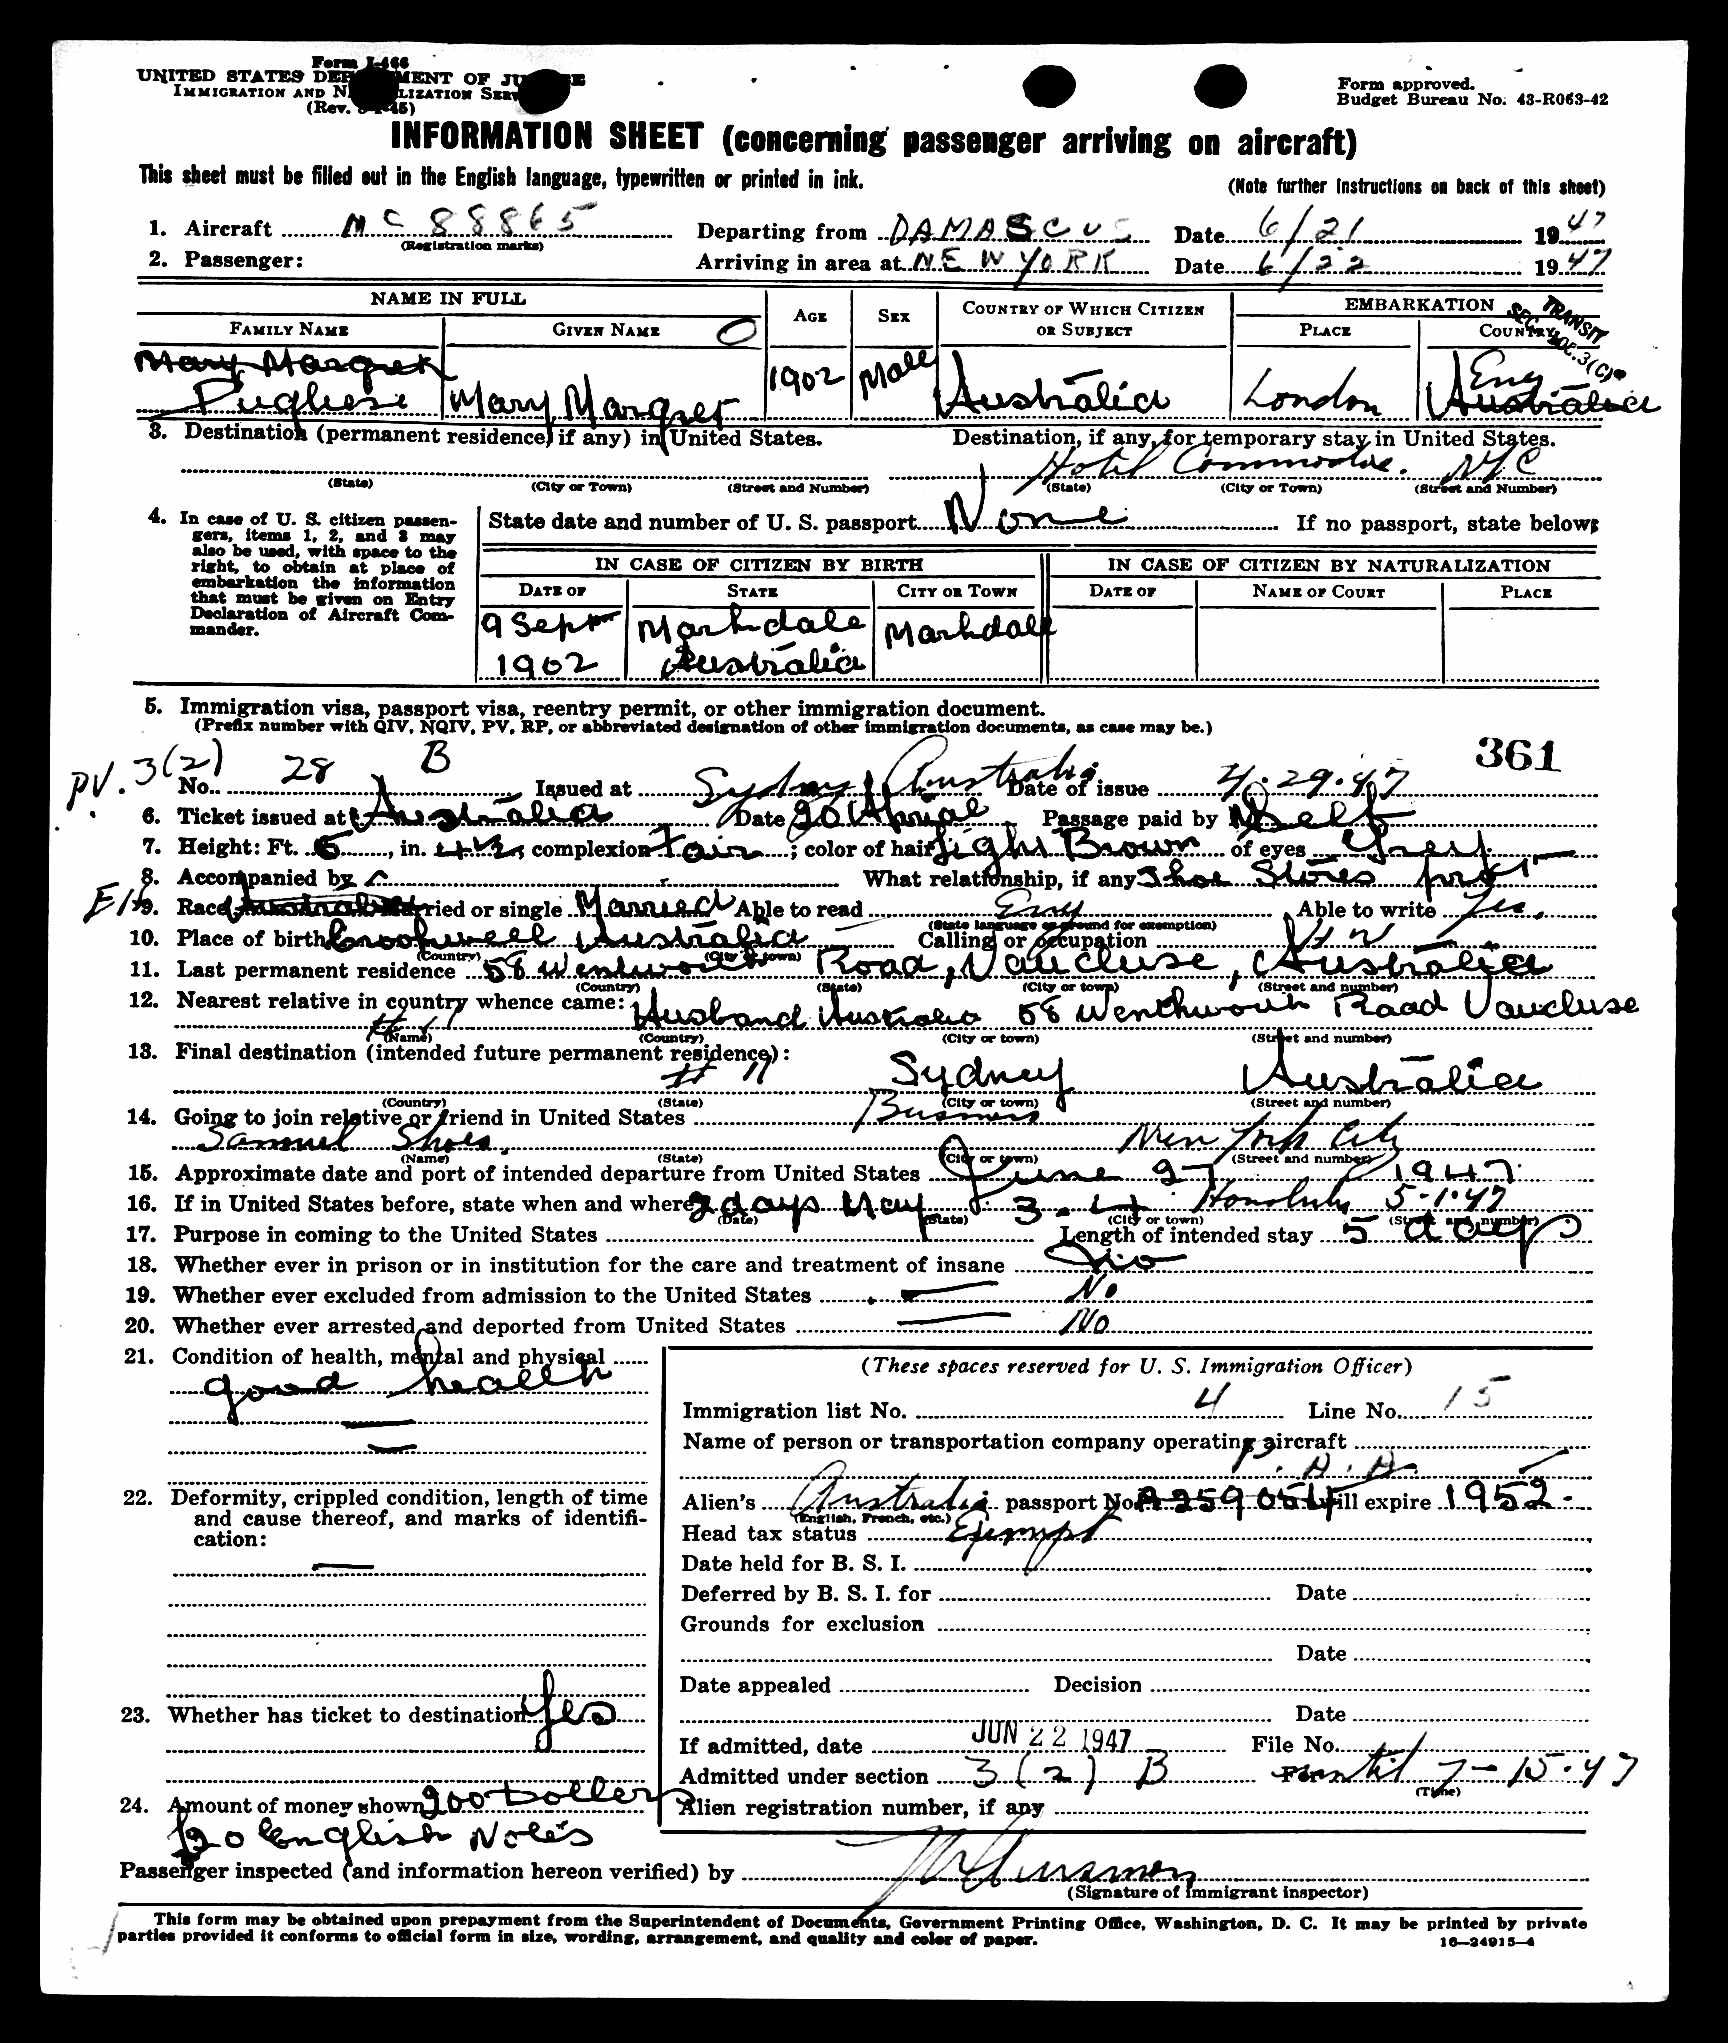 Form I-466
UNITED STATES DEPARTMENT OF JUSTICE
IMMIGRATION AND NATURALIZATION SERVICE
(Rev. 45)
Form approved.
Budget Bureau No. 43-R063-42
INFORMATION SHEET (concerning passenger arriving on aircraft)
This sheet must be filled out in the English language, typewritten or printed in ink.
(Note further instructions on back of this sheet)
1. Aircraft NC 88865 Departing from DAMASCUS Date 6/21 1947
(Registration marks)
2. Passenger: Arriving in area at NEW YORK Date 6/22 1947
NAME IN FULL AGE SEX COUNTRY OF WHICH CITIZEN OR SUBJECT EMBARKATION
FAMILY NAME GIVEN NAME PLACE COUNTRY
TRANSIT
SEC. 3(C)
Mary Margret
Pugliese Mary Margret 1902 Male Australia London Eng Australia
3. Destination (permanent residence, if any) in United States. Destination, if any, for temporary stay in United States.
Hotel Commodore. NYC
(State) (City or Town) (Street and Number) (State) (City or Town) (Street and Number)
4. In case of U. S. citizen passengers, items 1, 2, and 3 may also be used, with space to the right, to obtain at place of embarkation the information that must be given on Entry Declaration of Aircraft Commander.
State date and number of U. S. passport None If no passport, state below:
IN CASE OF CITIZEN BY BIRTH IN CASE OF CITIZEN BY NATURALIZATION
DATE OF STATE CITY OR TOWN DATE OF NAME OF COURT PLACE
9 Sept Markdale Markdale
1902 Australia
5. Immigration visa, passport visa, reentry permit, or other immigration document.
(Prefix number with QIV, NQIV, PV, RP, or abbreviated designation of other immigration documents, as case may be.)
361
PV. 3(2) B
No. 28 Issued at Sydney Australia Date of issue 4.29.47
6. Ticket issued at Australia Date 20 Aprial Passage paid by Self
7. Height: Ft. 5, in. 4½, complexion Fair; color of hair Light Brown of eyes Grey
8. Accompanied by What relationship, if any Shoe Stores propr
9. Race Australian Married or single Married Able to read Eng Able to write Yes.
(State language or ground for exemption)
10. Place of birth Crookwell Australia Calling or occupation
(Country) (City or town)
11. Last permanent residence 58 Wentworth Road, Vaucluse, Australia
(Country) (State) (City or town) (Street and number)
12. Nearest relative in country whence came: Husband Australia 58 Wenthworth Road Vaucluse
# 11
(Name) (Country) (City or town) (Street and number)
13. Final destination (intended future permanent residence):
# 11 Sydney Australia
(Country) (State) (City or town) (Street and number)
14. Going to join relative or friend in United States Business
Samuel Shoes. New York City
(Name) (State) (City or town) (Street and number)
15. Approximate date and port of intended departure from United States June 27 1947
16. If in United States before, state when and where 2 days May 3-4 Honolulu 5-1-47
(Date) (State) (City or town) (Street and number)
17. Purpose in coming to the United States Length of intended stay 5 days
18. Whether ever in prison or in institution for the care and treatment of insane No
19. Whether ever excluded from admission to the United States No
20. Whether ever arrested and deported from United States No
21. Condition of health, mental and physical
good health
22. Deformity, crippled condition, length of time and cause thereof, and marks of identification:
23. Whether has ticket to destination Yes
24. Amount of money shown 200 Dollers
£20 English Notes
(These spaces reserved for U. S. Immigration Officer)
Immigration list No. 4 Line No. 15
Name of person or transportation company operating aircraft
P. A. A.
Alien's Australia passport No. A259054 will expire 1952.
(English, French, etc.)
Head tax status Exempt
Date held for B. S. I.
Deferred by B. S. I. for Date
Grounds for exclusion
Date
Date appealed Decision
Date
If admitted, date JUN 22 1947 File No.
Admitted under section 3(2) B For until 7-15-47
(Time)
Alien registration number, if any
Passenger inspected (and information hereon verified) by
(Signature of immigrant inspector)
This form may be obtained upon prepayment from the Superintendent of Documents, Government Printing Office, Washington, D. C. It may be printed by private
parties provided it conforms to official form in size, wording, arrangement, and quality and color of paper.
16—24915-4